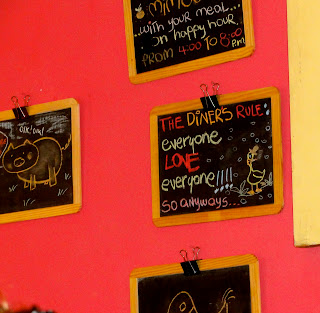 MIMO
...with your meal...
on happy hour
FROM 4:00 TO 8:00 P.M
OiK! Oink!
THE DINER'S RULE:
everyone
LOVE
everyone!!!!
SO anyways...